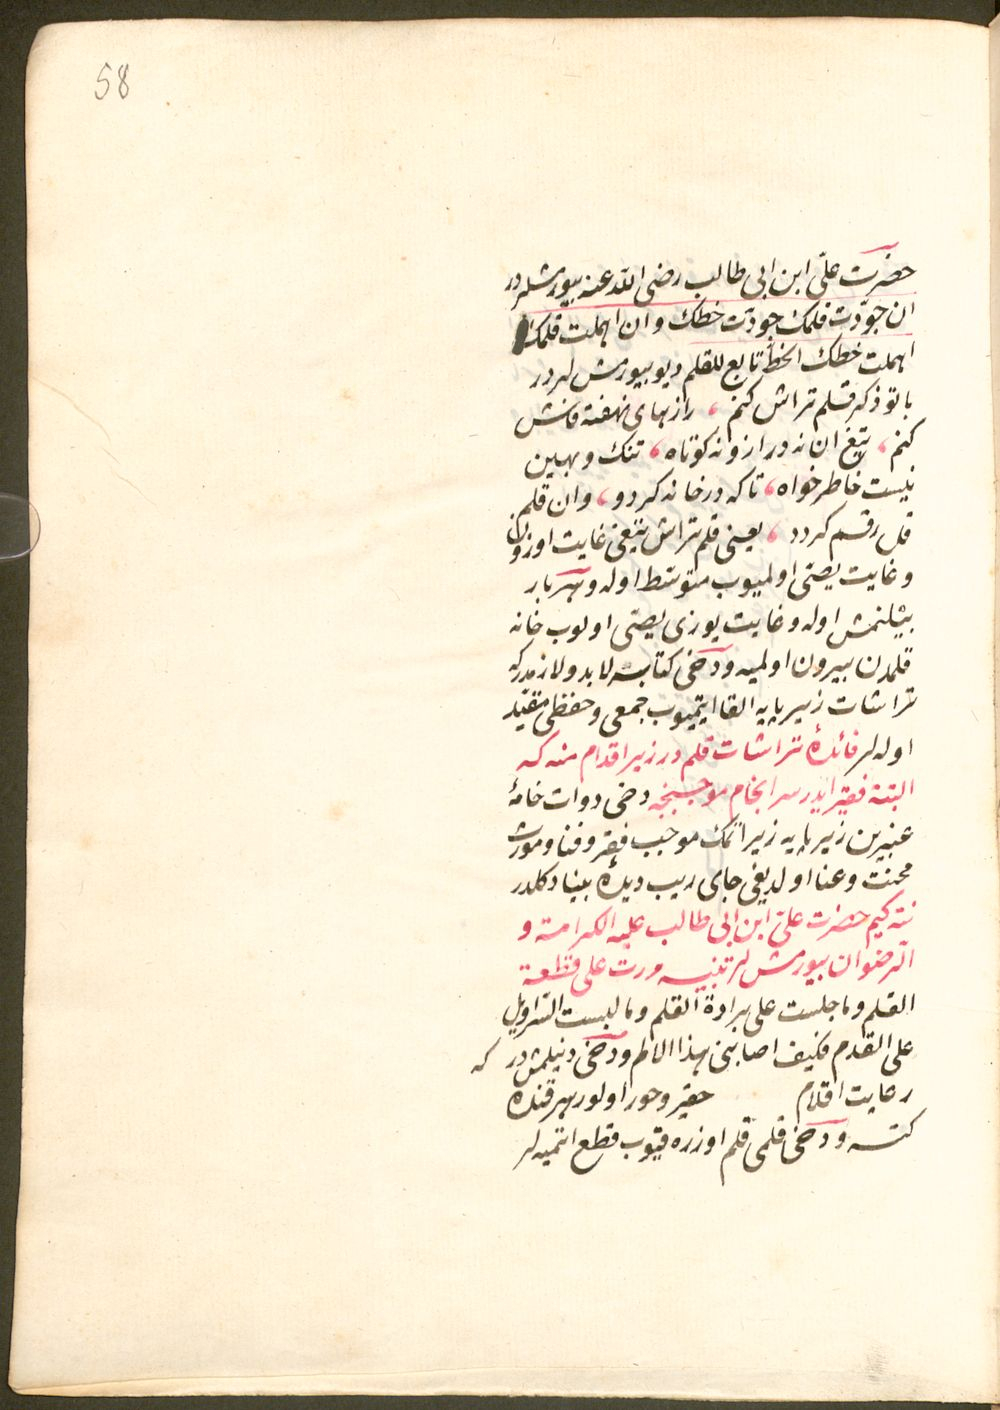 58
حضرت علی ابن ابی طالب رضی الله عنه بیورمشلردر
ان جوّدت قلمك جودّت خطك وان اهملت قلمك
اهملت خطك الخط تابع للقلم دیو بیورمش لردر
با تو ذكر قلم تراش كنم ، رازهای نهفته فاش
كنم ، تیغ ان نه دراز و نه كوتاه ، تنك و پهین
نیست خاطر خواه ، تا كه در خانه كردو ، وان قلم
قل رقم كردد ، یعنی قلم تراش تیغی غایت اوزون
و غایت یصّی اولمیوب متوسّط اوله و هر بار
بیلنمش اوله و غایت یوزی یصّی اولوب خانه
قلمدن بیرون اولمیه و دخی كتابه لابد و لازمدركه
تراشات زیر پایه القا ایتمیوب جمعی و حفظی مقیّد
اوله لر فائدهٔ تراشات قلم در زیر اقدام منه كه
البته فقیر ایدر سرانجام موجبنجه دخی دوات خامهٔ
عنبرین زیر پایه زیرا تمك موجب فقر و فنا و مورث
محنت و عنا اولدیغی جای ریب دیدهٔ بینا دكلدر
نته كیم حضرت علی ابن ابی طالب علیه الكرامة و
الرضوان بیورمش لر تنبیه ورت علی قطعة
القلم وما جلست علی برادة القلم وما لبست السّراویل
علی القدم فكیف اصابنی هذا الالم و دخی دنیلمش در كه
رعایت اقلام حقیر و حور اولور هر قنده
كته و دخی قلمی قلم اوزره قیوب قطع اتمیه لر